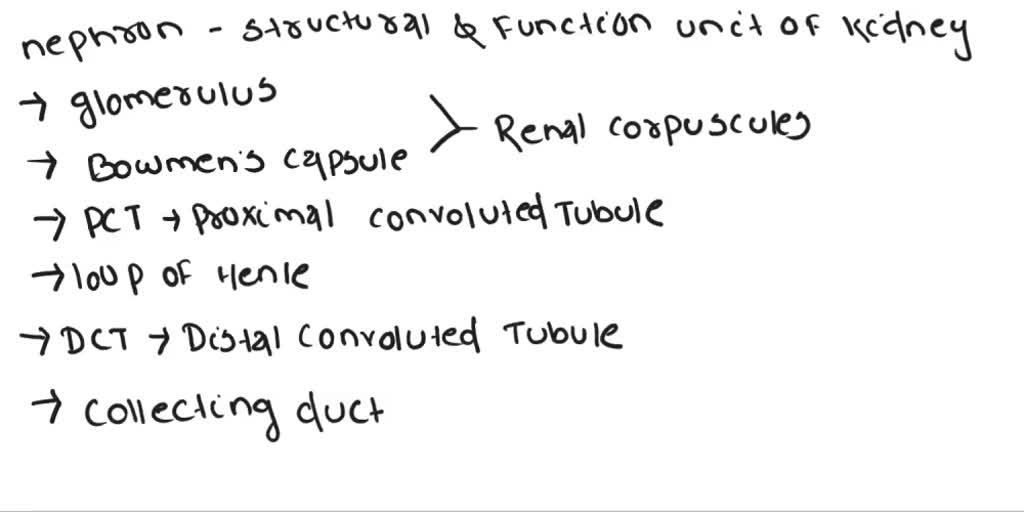 nephron - structural & Function unit of Kidney
→ glomerulus
→ Bowmen's capsule
Renal corpuscules
→ PCT → Proximal convoluted Tubule
→ loup of Henle
→ DCT → Distal convoluted Tubule
→ collecting duct